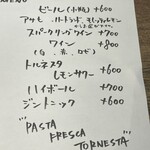 ビール(小瓶) +600
アサヒ・ハートランド・
スパークリングワイン +700
ワイン +800
(白・赤・ロゼ)
トルネスタ
レモンサワー +600
ハイボール +700
ジントニック +600
"PASTA
FRESCA
TORNESTA"